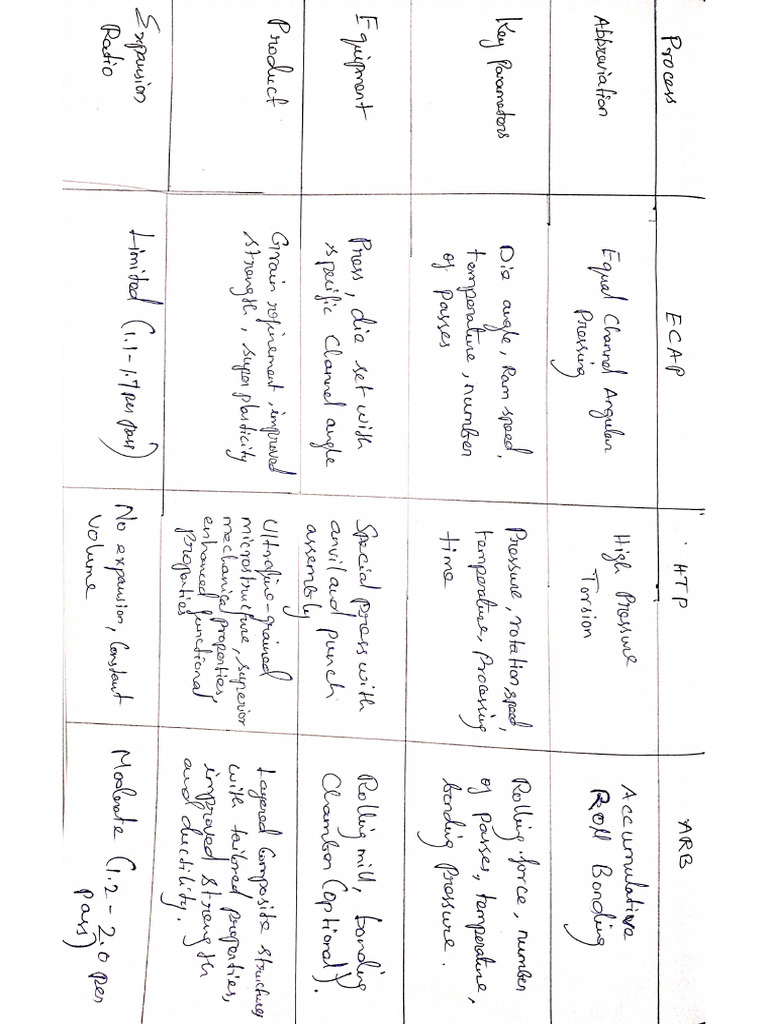 Process
ECAP
HTP
ARB
Abbreviation
Equal Channel Angular
Pressing
High Pressure
Torsion
Accumulative
Roll Bonding
Key Parameters
Die angle, Ram speed,
temperature, number
of passes
Pressure, rotation speed,
temperature, Processing
time
Rolling force, number
of passes, temperature,
bonding pressure.
Equipment
Press, die set with
specific Channel angle
Special press with
anvil and punch
assembly
Rolling mill, bonding
Chamber (optional).
Product
Grain refinement, improved
strength, super plasticity
Ultrafine-grained
microstructure, superior
mechanical properties,
enhanced functional
properties
Layered Composite structures
with tailored properties,
improved strength
and ductility.
Expansion
Ratio
Limited (1.1-1.7 per pass)
No expansion, Constant
volume
Moderate (1.2 - 2.0 per
pass)